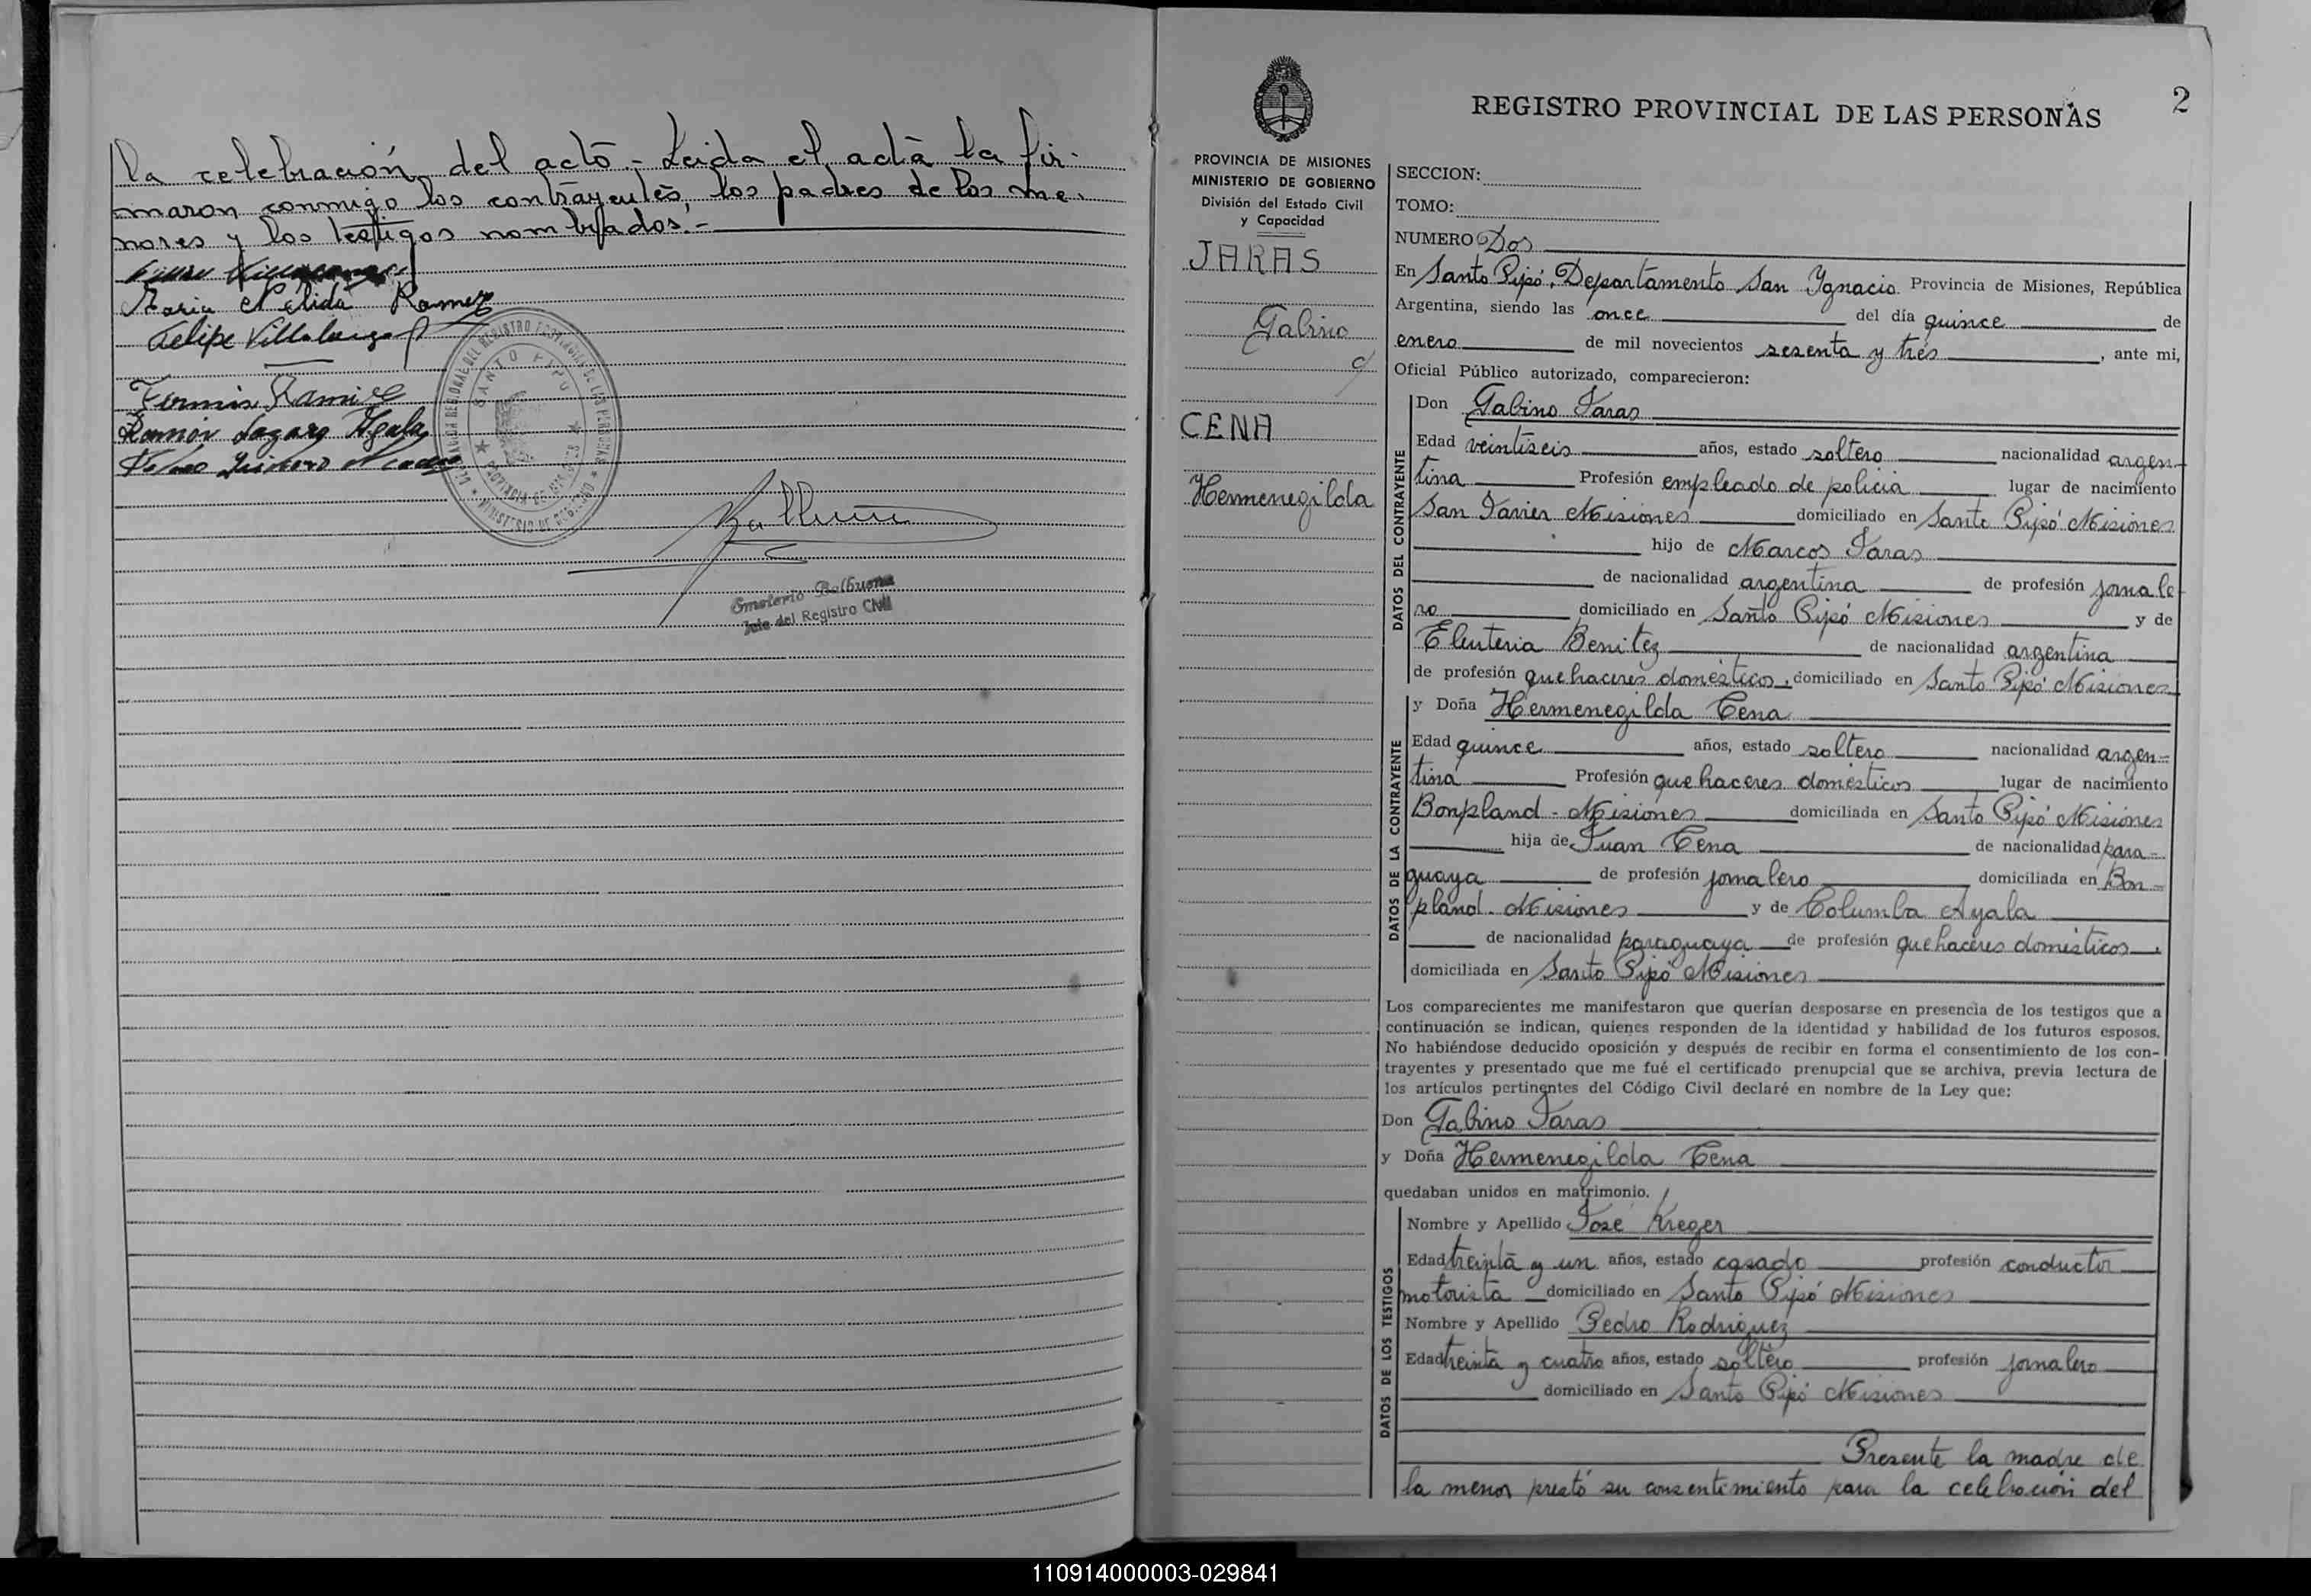 la celebración del acto.- Leida el acta la fir-
maron conmigo los contrayentes, los padres de los me-
nores y los testigos nombrados.-
Maria Nélida Ramez
Felipe Villalonga
Fermin Ramire
Ramón Lazaro Ayala
SANTO PIPO
PROVINCIA DE MISIONES
MINISTERIO DE GOBIERNO
Emeterio Balbuena
Jefe del Registro Civil
2
REGISTRO PROVINCIAL DE LAS PERSONAS
PROVINCIA DE MISIONES
MINISTERIO DE GOBIERNO
División del Estado Civil
y Capacidad
JARAS
Gabino
y
CENA
Hermenegilda
SECCION:
TOMO:
NUMERO Dos
En Santo Pipó, Departamento San Ygnacio Provincia de Misiones, República
Argentina, siendo las once del día quince de
enero de mil novecientos sesenta y tres, ante mi,
Oficial Público autorizado, comparecieron:
DATOS DEL CONTRAYENTE
Don Gabino Jaras
Edad veintiseis años, estado soltero nacionalidad argen-
tina Profesión empleado de policia lugar de nacimiento
San Javier Misiones domiciliado en Santo Pipó Misiones
hijo de Marcos Jaras
de nacionalidad argentina de profesión jornale-
ro domiciliado en Santo Pipó Misiones y de
Eleuteria Benitez de nacionalidad argentina
de profesión quehaceres domésticos, domiciliado en Santo Pipó Misiones
DATOS DE LA CONTRAYENTE
y Doña Hermenegilda Cena
Edad quince años, estado soltero nacionalidad argen-
tina Profesión quehaceres domésticos lugar de nacimiento
Bonpland - Misiones domiciliada en Santo Pipó Misiones
hija de Juan Cena de nacionalidad para-
guaya de profesión jornalero domiciliada en Bon-
pland - Misiones y de Columba Ayala
de nacionalidad paraguaya de profesión quehaceres domésticos,
domiciliada en Santo Pipó Misiones
Los comparecientes me manifestaron que querían desposarse en presencia de los testigos que a
continuación se indican, quienes responden de la identidad y habilidad de los futuros esposos.
No habiéndose deducido oposición y después de recibir en forma el consentimiento de los con-
trayentes y presentado que me fué el certificado prenupcial que se archiva, previa lectura de
los artículos pertinentes del Código Civil declaré en nombre de la Ley que:
Don Gabino Jaras
y Doña Hermenegilda Cena
quedaban unidos en matrimonio.
DATOS DE LOS TESTIGOS
Nombre y Apellido José Kreger
Edad treinta y un años, estado casado profesión conductor
motorista domiciliado en Santo Pipó Misiones
Nombre y Apellido Pedro Rodriguez
Edad treinta y cuatro años, estado soltero profesión jornalero
domiciliado en Santo Pipó Misiones
Presente la madre de
la menor prestó su consentimiento para la celebración del
110914000003-029841